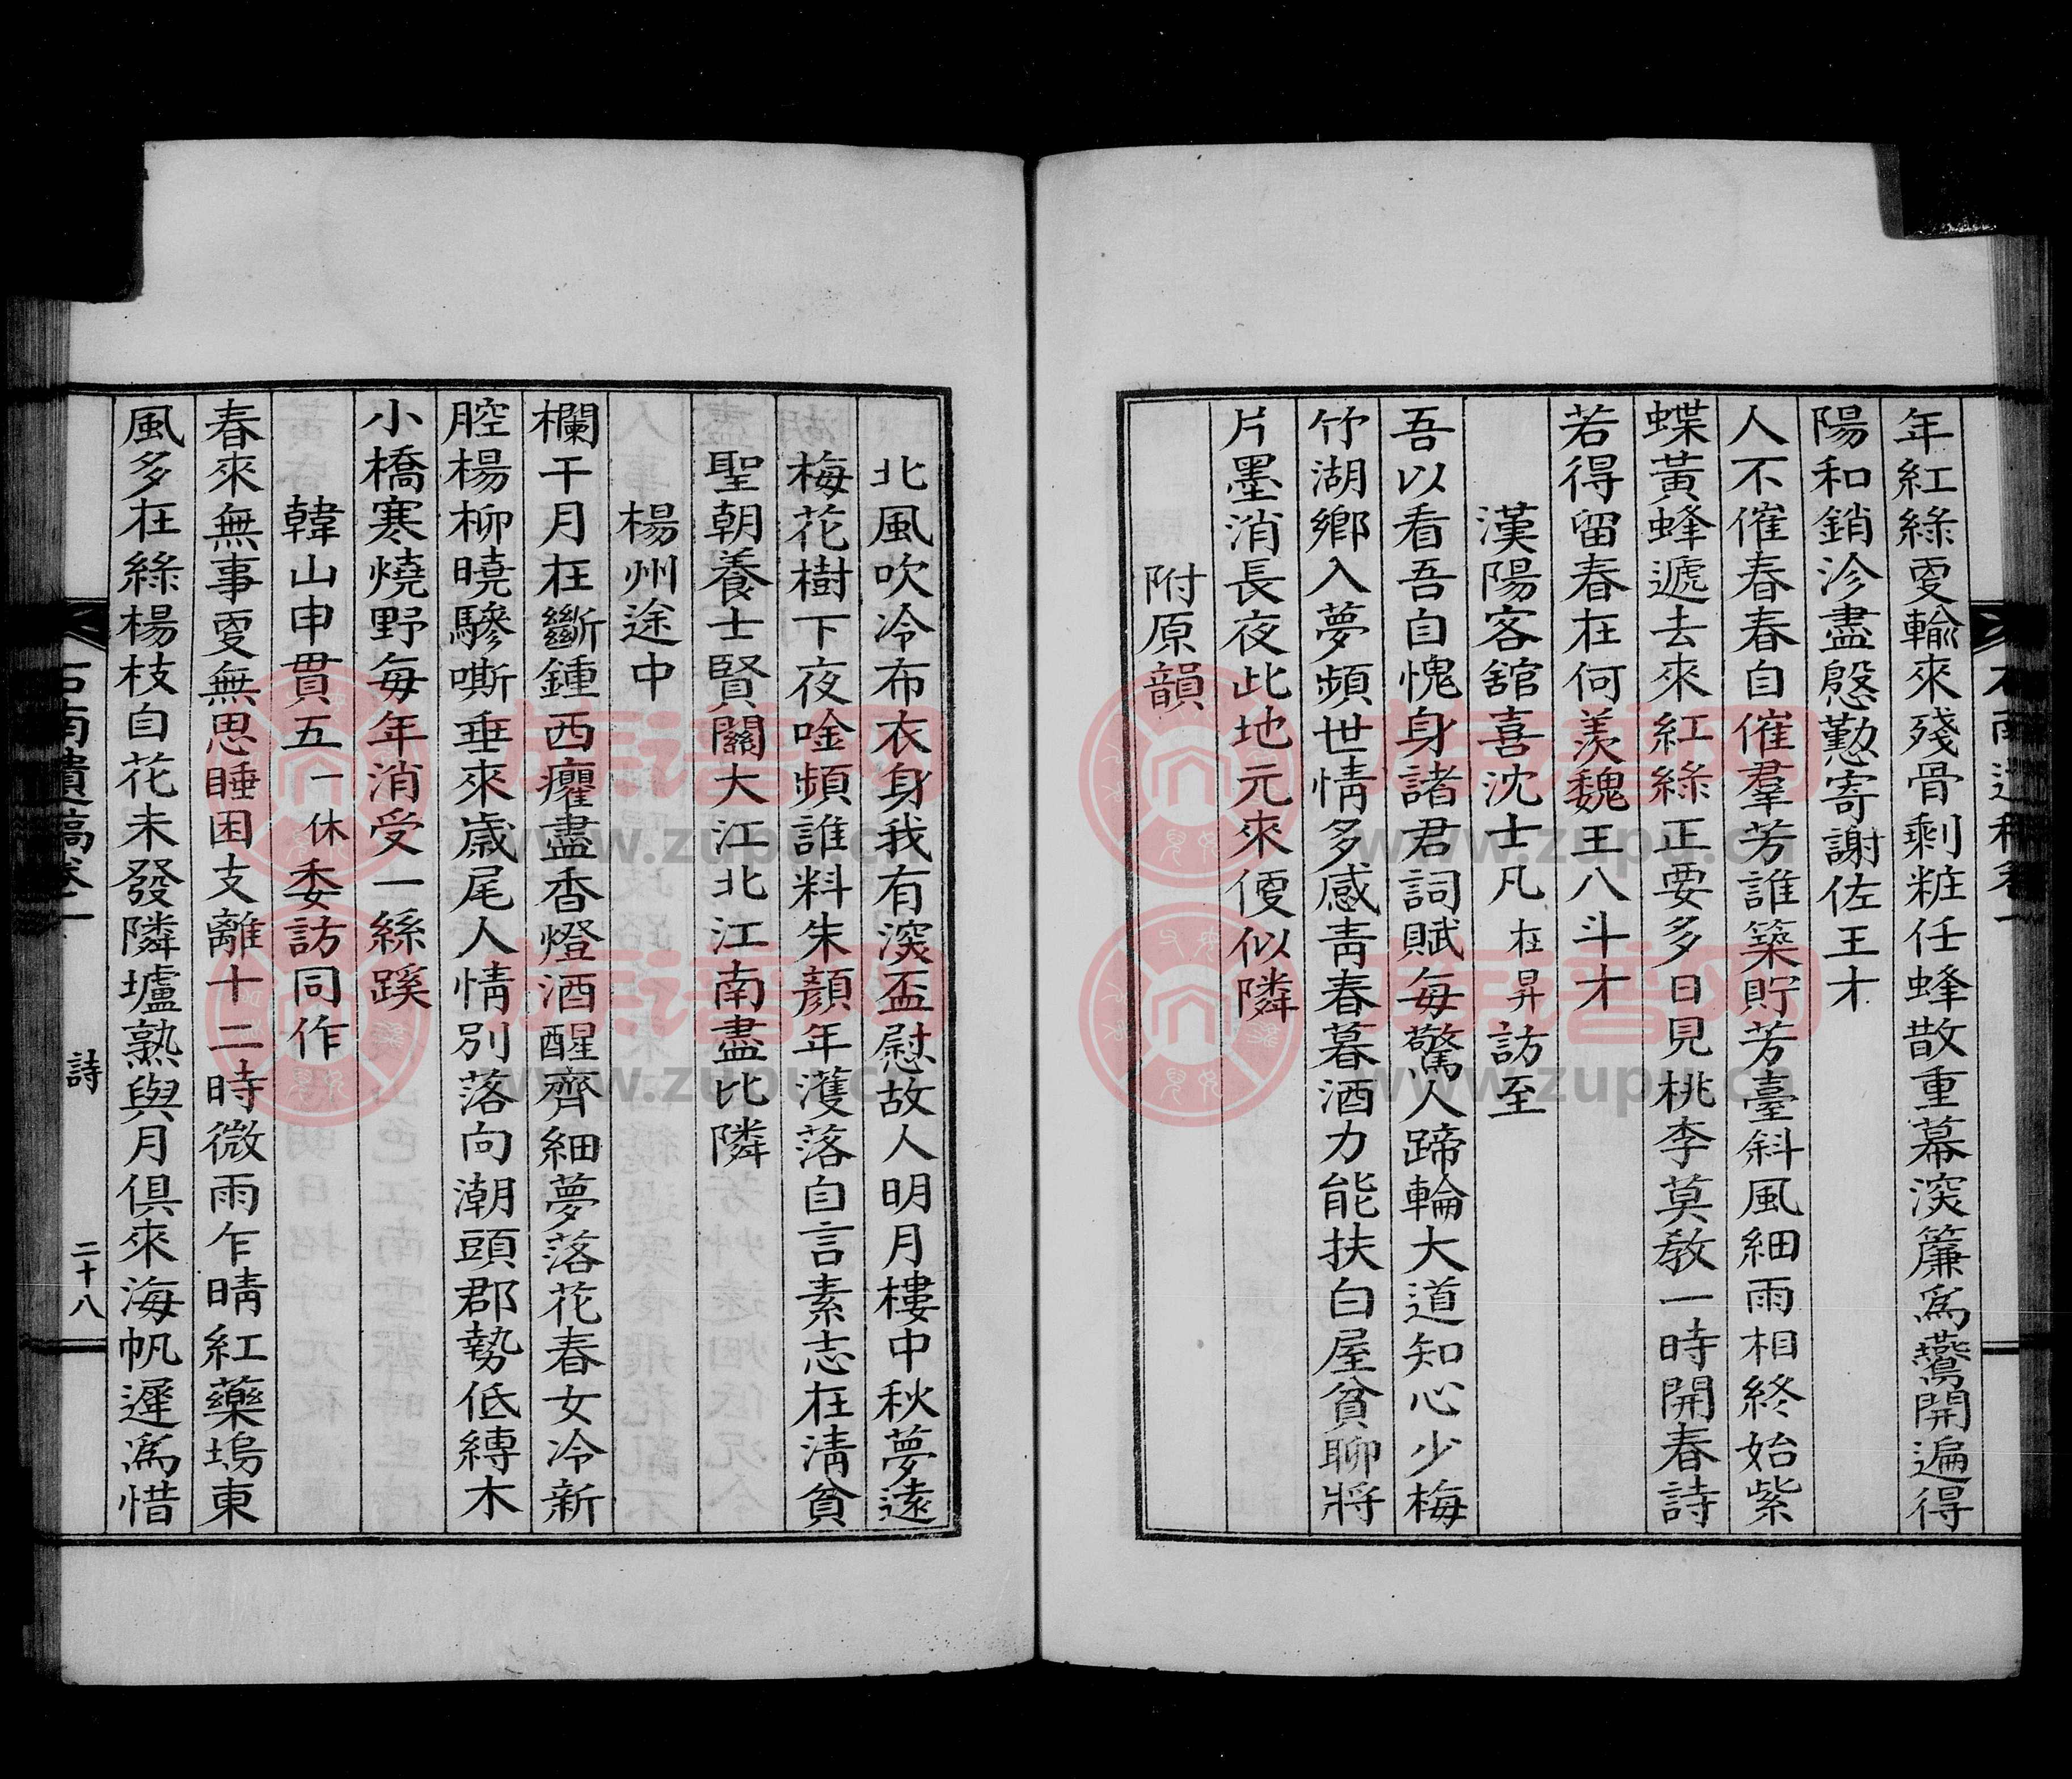 年紅綠更輸來殘骨剩粧任蜂散重幕深簾爲鶯開遍得
陽和銷沴盡慇懃寄謝佐王才
人不催春春自催羣芳誰築貯芳臺斜風細雨相終始紫
蝶黃蜂遞去來紅綠正要多日見桃李莫教一時開春詩
若得留春在何羨魏王八斗才
漢陽客舘喜沈士凡在昇訪至
吾以看吾自愧身諸君詞賦每驚人蹄輪大道知心少梅
竹湖鄉入夢頻世情多感靑春暮酒力能扶白屋貧聊將
片墨消長夜此地元來便似隣
附原韻
北風吹冷布衣身我有深盃慰故人明月樓中秋夢遠
梅花樹下夜唫頻誰料朱顏年濩落自言素志在淸貧
聖朝養士賢關大江北江南盡比隣
楊州途中
欄干月在斷鍾西癯盡香燈酒醒齊細夢落花春女冷新
腔楊柳曉驂嘶垂來歲尾人情別落向潮頭郡勢低縳木
小橋寒燒野每年消受一絲蹊
韓山申貫五一休委訪同作
春來無事更無思睡困支離十二時微雨乍晴紅藥塢東
風多在綠楊枝自花未發隣壚熟與月俱來海帆遲爲惜
石南遺稿卷一
詩
二十八
www.zupu.cn
www.zupu.cn
www.zupu.cn
www.zupu.cn